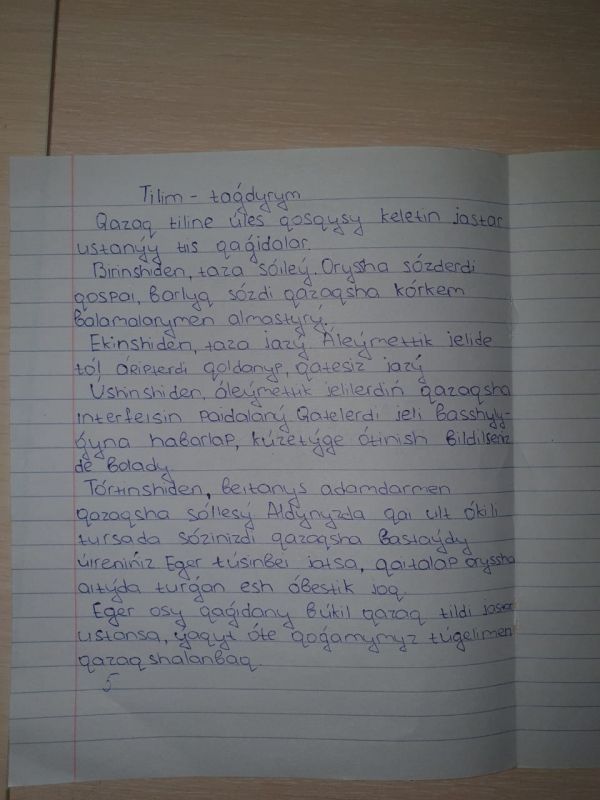 Tilim - taǵdyrym
Qazaq tiline úles qosqysy keletin jastar
ustanýy tiis qaǵidalar.
Birinshiden, taza sóileý. Oryssha sózderdi
qospai, barlyq sózdi qazaqsha kórkem
balamalarymen almastyrý.
Ekinshiden, taza jazý. Áleýmettik jelide
tól áriplerdi qoldanyp, qatesiz jazý
Úshinshiden, áleýmettik jelilerdiń qazaqsha
interfeisin paidalaný. Qatelerdi jeli basshyly-
ǵyna habarlap, kúzetýge ótinish bildilseńiz
de bolady.
Tórtinshiden, beitanys adamdarmen
qazaqsha sóilesý. Aldyńyzda qai ult ókili
tursada sózińizdi qazaqsha bastaýdy
úirenińiz Eger túsinbei jatsa, qaitalap oryssha
aitýda turǵan esh óbestik joq.
Eger osy qaǵidany búkil qazaq tildi jastar
ustansa, ýaqyt óte qoǵamymyz túgelimen
qazaqshalanbaq.
5